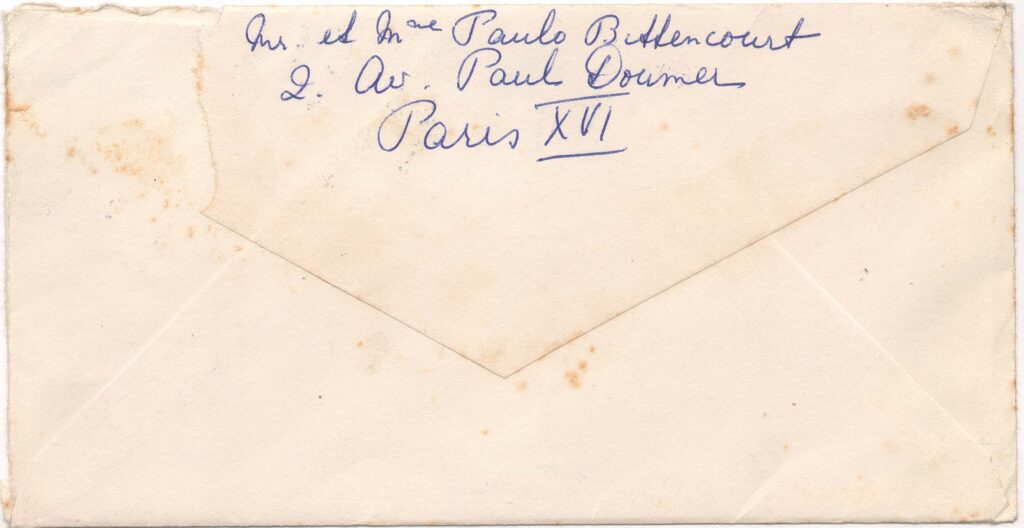 Mr. et Mme Paulo Bittencourt
2. Av. Paul Doumer
Paris XVI